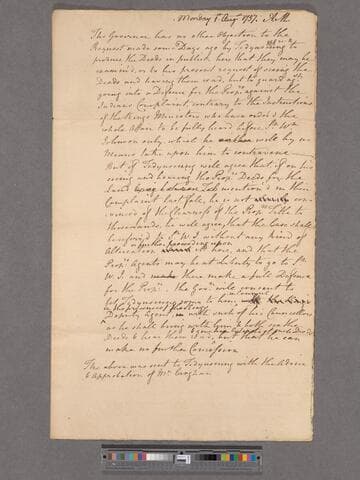 Monday 1 Augt 1757. A.M.
The Governor has no other Objection to the
Request made some Days ago by Teedyuscung to
produce the Deeds in publick here that they may be
examin'd, or to his present request of seeing the
Deeds and having them read, but to guard agt
going into a Defence for the Propr against the
Indian Complaint, contrary to the Instructions
of the Kings Ministers who have order'd the
whole Affair to be fully heard before Sr Wm
Johnson only, which he will by no
Means take upon him to contravene
But if Teedyuscung will agree that if on his
seeing and hearing the Propr Deeds for the
Land mention'd in their
Complaint last fall, he is not con-
vinced of the Clearness of the Propr Title to
those lands, he will agree, that the Case shall
be referr'd to Sr W. J. without any kind of
Altercation or further proceeding upon it here, and that the
Propr Agents may be at liberty to go to Sr
W. J. and there make a full Defence
for the Propr; the Govr will consent to
let Teedyuscung come to him,
Deputy Agent, with such of his Counsellors
as he shall bring with him & both see the
Deeds & hear them read, but that he can
make no further Concession
The above was sent to Teedyuscung with the Advice
& Approbation of Mr Croghan